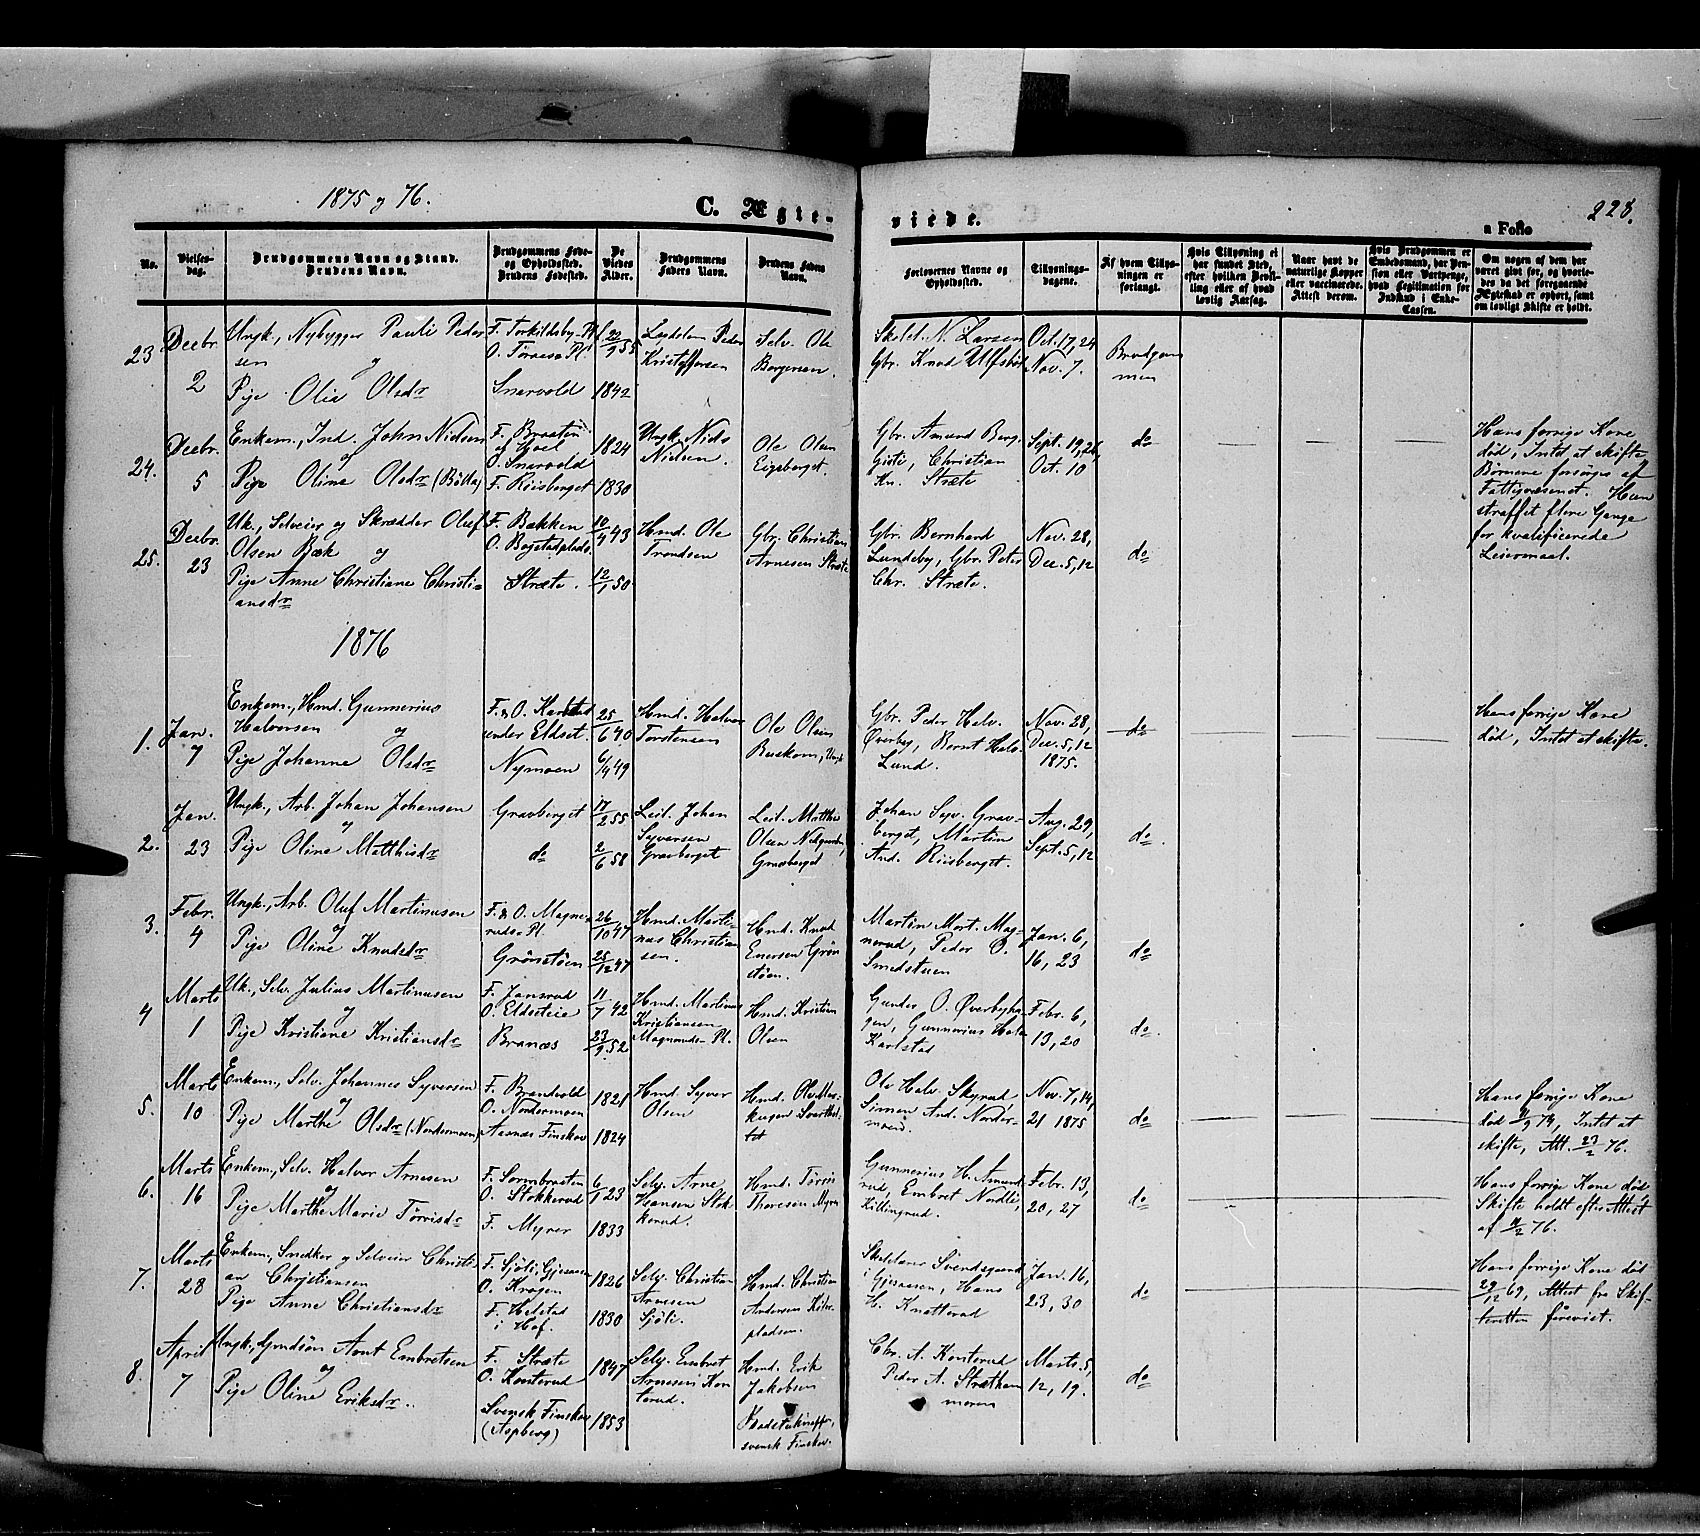 1875 og 76.
C. Ægte-
viede.
228.
a Folio
No.
Vielses-
dag.
Brudgommens Navn og Stand.
Brudens Navn.
Brudgommens Føde-
og Opholdssted.
Brudens Fødested.
De
Viedes
Alder.
Brudgommens
Faders Navn.
Brudens Faders
Navn.
Forlovernes Navne og
Opholdssted.
Tillysnings-
dagene.
Af hvem Tillys-
ningen er
forlangt.
Hvis Tillysning ei
har fundet Sted,
efter hvilken Bevil-
ling eller af hvad
lovlig Aarsag.
Naar havt de
naturlige Kopper
eller vaccinerede.
Attest derom.
Hvis Brudgommen er
Embedsmand, har Pen-
sion eller Vartpenge,
hvad Legitimation for
Indskud i Enke-
Cassen.
Om nogen af dem har
været givt før, og hvorle-
des da det foregaaende
Ægteskab er ophørt, samt
om lovligt Skifte er holdt.
23
Decbr.
2
Ungk., Nybygger Pauli Peder
sen og
Pige Olia Olsdr
F. Torkildsby Pl
O. Törnesø Pl
Snarvold
22/9 55
1842
Peder
Kristoffersen
Selv. Ole
Borgersen.
Skolel. N. Larsen
Gbr. Knud Ulfsböl
Oct. 17, 24
Nov. 7.
Brudgom
men
24.
Decbr.
5
Enkem., Ind. John Nielsen
og
Pige Oline Olsdr (Bölla)
F. Braaten
O. Snarvold
F. Riisberget
1824
1830
Ungk. Niels
Nielsen.
Ole Olsen
Eigsberget.
Gbr. Amund Berg.
Gisti, Christian
Kn. Stræte
Sept. 19, 26,
Oct. 10
do
Hans forrige Kone
död, Intet at skifte
Börnene forsörges af
Fattigvæsenet. Han
straffet flere Gange
for kvalificerede
Leiermaal.
25.
Decbr.
23
Uk., Selveier og Skrædder Oluf
Olsen Bæk og
Pige Anne Christiane Christi-
ansdr
F. Bakken
O. Bogstadplads.
Stræte.
10/4 43
12/1 50
Hmd. Ole
Trondsen
Gbr. Christian
Arnesen Stræte
Gbr. Bernhard
Lundeby, Gbr. Peter
Chr. Stræte.
Nov. 28,
Dec. 5, 12
do
1876
1.
Jan.
7
Enkem., Hmd. Gunnerius
Halvorsen og
Pige Johanne Olsdr
F. & O. Karlstad
under Eldset.
Nymoen
25/6 40
6/4 49
Hmd. Halvor
Torstensen
Ole Olsen
Buskom,
Gbr. Peder Halv.
Överby, Bernt Halv.
Lund.
Nov. 28,
Dec. 5, 12
1875.
do
Hans forrige Kone
död, Intet at skifte.
2.
Jan.
23
Ungk., Arb. Johan Johansen
og
Pige Oline Matthisdr
Gravberget
do
17/2 55
2/6 58
Leil. Johan
Syversen
Gravberget
Leil. Matthis
Olsen Nedgaarden,
Gravberget
Johan Syv. Grav-
berget, Martin
And. Riisberget.
Aug. 29,
Sept. 5, 12
do
3.
Febr.
4
Ungk., Arb. Oluf Martinusen
og
Pige Oline Knudsdr
F. & O. Magne-
ruds Pl.
Grönstöen
26/10 47
25/12 47
Hmd. Marti-
nus Christian
sen.
Hmd. Knud
Enersen Grön
stöen.
Martin Mort. Mag-
nerud, Peder O.
Smedstuen
Jan. 6,
16, 23
do
4
Marts
1
Uk., Selv. Julius Martinusen
og
Pige Kristiane Kristiansdr
F. Jansrud
O. Eldseteie
Branæs
11/7 42
23/9 52
Hmd. Martinus
Kristiansen
Magneruds Pl.
Hmd. Kristian
Olsen
Gunder O. Överbyha-
gen, Gunnerius Halv
Karlstad
Febr. 6,
13, 20
do.
5.
Marts
10
Enkem., Selv. Johannes Syversen
og
Pige Marthe Olsdr (Nordermoen)
F. Brandvold
O. Nordermoen
Aasnæs Finskov
1821
1824
Hmd. Syver
Olsen
Hmd. Ole Mar-
kusen Svarthol-
tet
Ole Halv. Skyrud
Simen And. Norder-
moen.
Nov. 7, 14,
21 1875
do
Hans forrige Kone
död 11/9 74, Intet at
skifte, Att. 23/2 76.
6.
Marts
16
Enkem., Selv. Halvor Arnesen
og
Pige Marthe Marie Törrisdr
F. Sormbraaten
O. Stokkerud
F. Myrer
6/1 23
1833
Selv. Arne
Hansen Stok
kerud.
Hmd. Törris
Thoresen Myrer
Gunnerius H. Amund
rud, Embret Nordli,
Killingrud.
Febr. 13,
20, 27
do
Hans forrige Kone död
Skifte holdt efter Attest
af 11/2 76.
7.
Marts
28
Enkem., Snedker og Selveier Christi-
an Christiansen
Pige Anne Christiansdr
F. Sjöli, Gjesaasen
O. Krogen
F. Helstad
i Hof.
1826
1830
Selv. Christian
Arnesen
Sjöli.
Hmd. Christian
Andersen
pladsen.
Skolelærer Svendsgaard
i Gjesaasen, Hans
H. Knatterud
Jan. 16,
23, 30
do
Hans forrige Kone död
29/12 69, Attest fra Skif-
teretten foreviist.
8.
April
7
Ungk., Gaardsön Arnt Embretsen
og
Pige Oline Eriksdr.
F. Stræte
O. Konterud
Svensk Finskov
(Aspberg)
1847
1853
Selv. Embret
Arnesen Kon
terud.
Hmd. Erik
Jakobsen
svensk Finskov.
Chr. A. Konterud
Peder A. Stræthom
moren
Marts. 5,
12, 19.
do